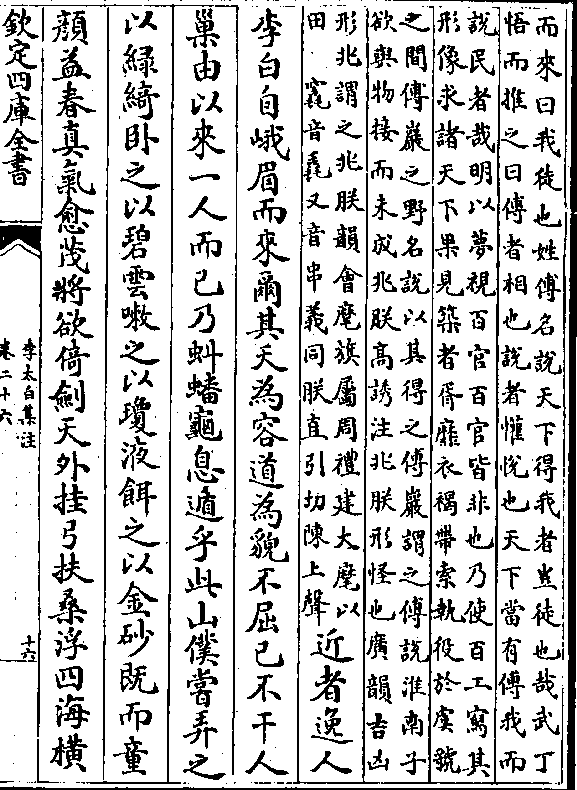 而來曰我徒也姓傅名説天下得我者豈徒也哉武丁
悟而推之曰傅者相也説者懽悅也天下當有傅我而
説民者哉明以夢視百官百官皆非也乃使百工寫其
形像求諸天下果見築者胥靡衣褐帶索執役於虞虢
之間傅巖之野名説以其得之傅巖謂之傅説淮南子
欲與物接而未成兆朕髙誘注兆朕形怪也廣韻吉凶
形兆謂之兆朕韻會麾旗屬周禮建大麾以
田 竁音毳又音串義同朕直引切陳上聲
近者逸人
李白自峨眉而來爾其天為容道為貌不屈己不干人
巢由以來一人而已乃虯蟠龜息遁乎此山僕嘗弄之
以緑綺卧之以碧雲嗽之以瓊液餌之以金砂既而童
顔益春真氣愈茂將欲倚劍天外挂弓扶桑浮四海横
欽定四庫全書
李太白集注
卷二十六
十六